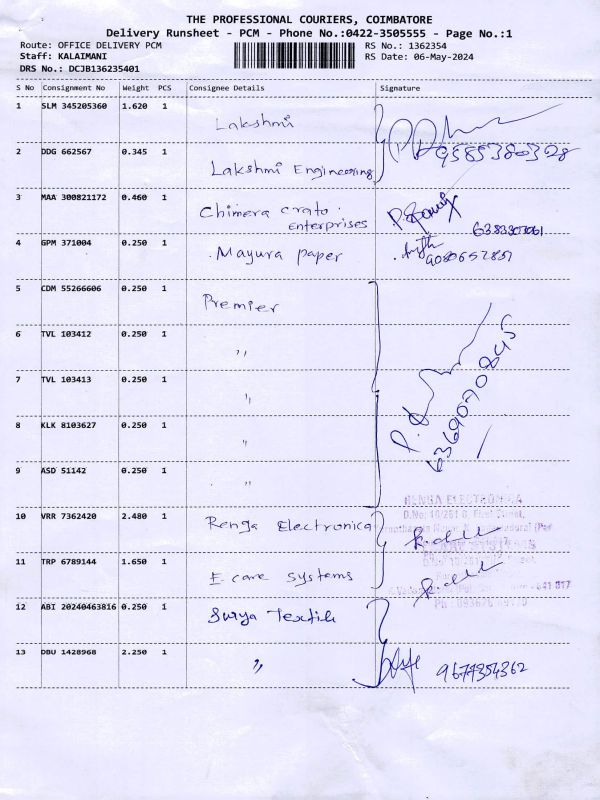 THE PROFESSIONAL COURIERS, COIMBATORE
Delivery Runsheet - PCM - Phone No.:0422-3505555 - Page No.:1
Route: OFFICE DELIVERY PCM
Staff: KALAIMANI
DRS No.: DCJB136235401
RS No.: 1362354
RS Date: 06-May-2024
S No Consignment No Weight PCS Consignee Details Signature
1 SLM 345205360 1.620 1 Lakshmi
2 DDG 662567 0.345 1 Lakshmi Engineering 9585380328
3 MAA 300821172 0.460 1 Chimera crato
enterprises
4 GPM 371004 0.250 1 Mayura paper
5 CDM 55266606 0.250 1 Premier
6 TVL 103412 0.250 1 "
7 TVL 103413 0.250 1 "
8 KLK 8103627 0.250 1 " 6369070845
9 ASD 51142 0.250 1 "
RENGA ELECTRONICA
10 VRR 7362420 2.480 1 Renga Electronica
11 TRP 6789144 1.650 1 E-care systems
641 017
12 ABI 20240463816 0.250 1 Surya Textile
13 DBU 1428968 2.250 1 " 9677354362